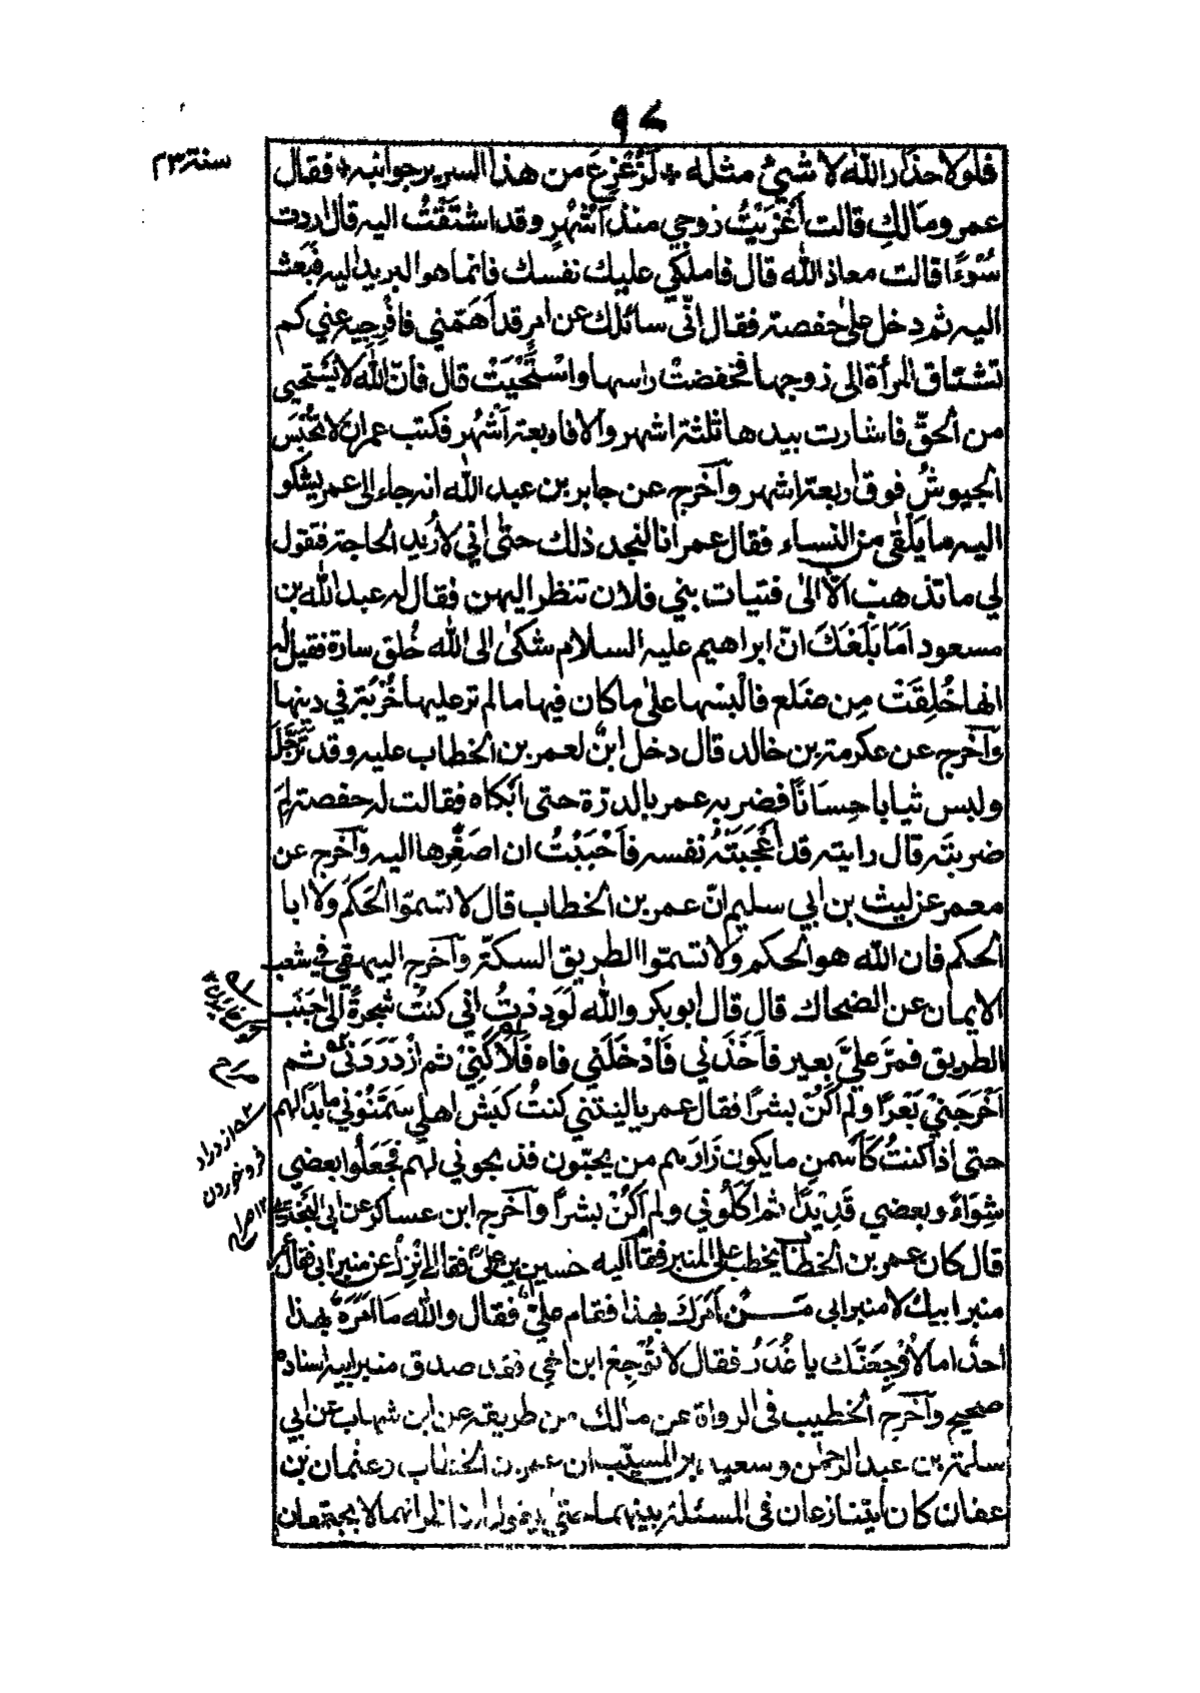 ٩٧
سنة ٢٣م
فلولا حذار الله لا شيئ مثله * لَزُعْزِعَ من هذا السرير جوانبه * فقال
عمر ومالكِ قالت أَغْزَيْتُ زوجي منذ أَشْهُرٍ وقد اشتَقْتُ اليه قال اردت
سُوْءًا قالت معاذ الله قال فاملكي عليك نفسك فانما هو البريد اليه فبَعَث
اليه ثم دخل على حفصة فقال انّى سائلك عن امرٍ قد اَهَمّني فافْرِجيه عني كم
تشتاق المرأة الى زوجها فخفضتْ راسها واسْتَحْيَتْ قال فانّ الله لا يَسْتَحيى
من الحقّ فاشارت بيدها ثلثة اشهر والا فاربعة اَشْهُر فكتب عمر ان لا تُحْبَسَ
الجيوشُ فوق اربعة اشهر وآخرج عن جابر بن عبد الله انه جاء الى عمر يشكو
اليه ما يَلْقٰى من النساء فقال عمر انا لنجد ذلك حتٰى اني لاُريد الحاجة فتقول
لي ما تذهب الّا الٰى فتيات بني فلان تنظر اليهن فقال له عبد الله بن
مسعود اَمَا بَلَغَكَ انّ ابراهيم عليه السلام شكىٰ الى الله خُلق سارة فقيل له
انها خُلِقَتْ مِن ضلع فالبسْها علىٰ ما كان فيها ما لم تر عليها خُرْبَة في دينها
وآخرج عن عكرمة بن خالد قال دخل ابنٌ لعمر بن الخطاب عليه وقد تَرَجَّلَ
ولبس ثيابا حِسَانًا فضربه عمر بالدرّة حتى ابْكاه فقالت له حفصة لِمَ
ضربتَه قال رايته قد اَعْجَبَتْهُ نفسه فاَحْبَبْتُ ان اصَغِّرها اليه وآخرج عن
معمر عن ليث بن ابي سليم انّ عمر بن الخطاب قال لا تسمّوا الحَكَم ولا ابا
الحكم فان الله هو الحكم ولا تسمّوا الطريق السكّة وآخرج البيهقي في شعب
الايمان عن الضحاك قال قال ابو بكر والله لَوَدِدْتُ اني كنتُ شجرةً الىٰ جَنْب
الطريق فمرّ عليَّ بعير فاَخَذَني فَاَدْخَلَني فاه فَلَاكَنِيْ ثم ازْدَرَدَنِىْ ثم
اَخْرَجَنِيْ بَعَرًا ولم اَكُنْ بشرًا فقال عمر يا ليتني كنتُ كَبش اهلي سَمَّنُوْني ما بدا لهم
حتى اذا كنتُ كَاَسْمنِ ما يكون زَارَهم من يحبّون فذبحوني لهم فجَعَلُوا بعضي
شِوَاءً وبعضي قَدِيْدًا ثم اَكَلُوني ولم اَكُنْ بشرًا وآخرج ابن عساكر عن ابي البَخْتَرِي
قال كان عمر بن الخطاب يخطب على المنبر فقام اليه حسين بن علي فقال انْزِلْ عن منبر ابي فقال عمر
منبر ابيك لا منبر ابى مَن اَمَرَكَ بهذا فقام عليّ فقال والله مَا اَمَرَهُ بهذا
احدٌ اما لاُوْجِعَنَّك يا غُدَرُ فقال لا تُوْجِعْ ابن اخي فقد صدق منبر ابيه اسناده
صحيح وآخرج الخطيب فى الرواة عن مالك من طريقه عن ابن شهاب عن ابي
سلمة بن عبد الرحمٰن وسعيد بن المسيّب ان عمر بن الخطاب وعثمان بن
عفان كانا يتنازعان فى المسئلة بينهما حتى يقول الناظر انهما لا يجتمعان
ازدراد
فروخوردن
١٢ صراح